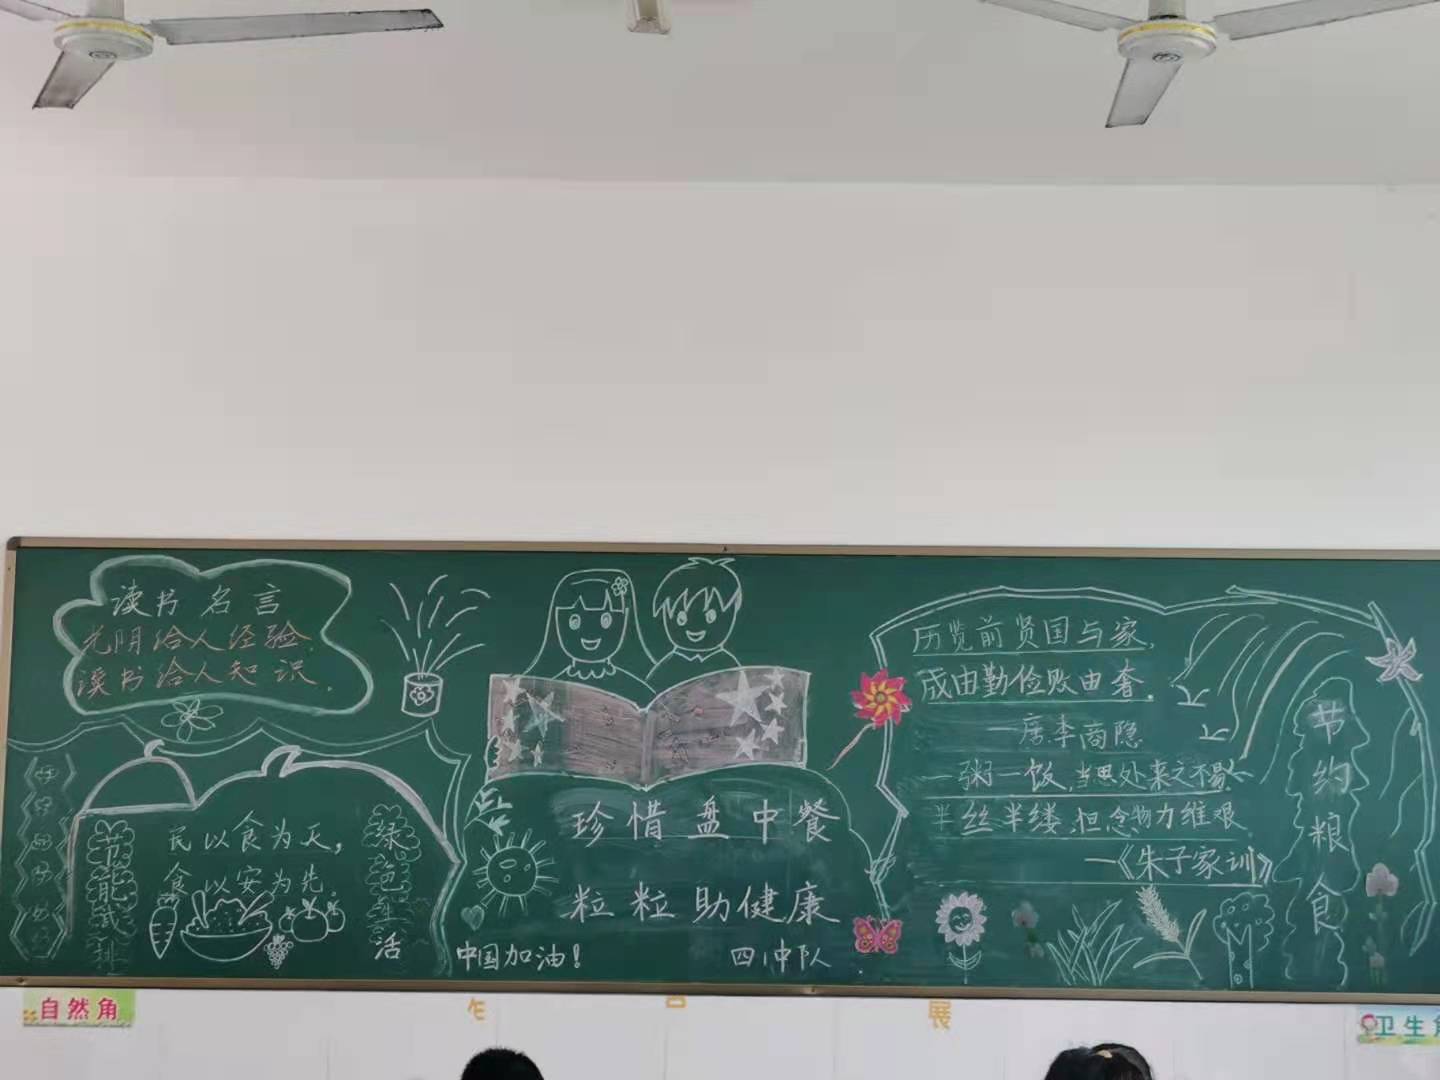 读书名言
光阴给人经验,
读书给人知识.
节能减排
民以食为天,
食以安为先.
绿色生活
珍惜盘中餐
粒粒助健康
中国加油!
四1中队
历览前贤国与家,
成由勤俭败由奢.
——唐.李商隐
一粥一饭,当思处来之不易,
半丝半缕,恒念物力维艰.
—《朱子家训》
节约粮食
自然角
作品展
卫生角